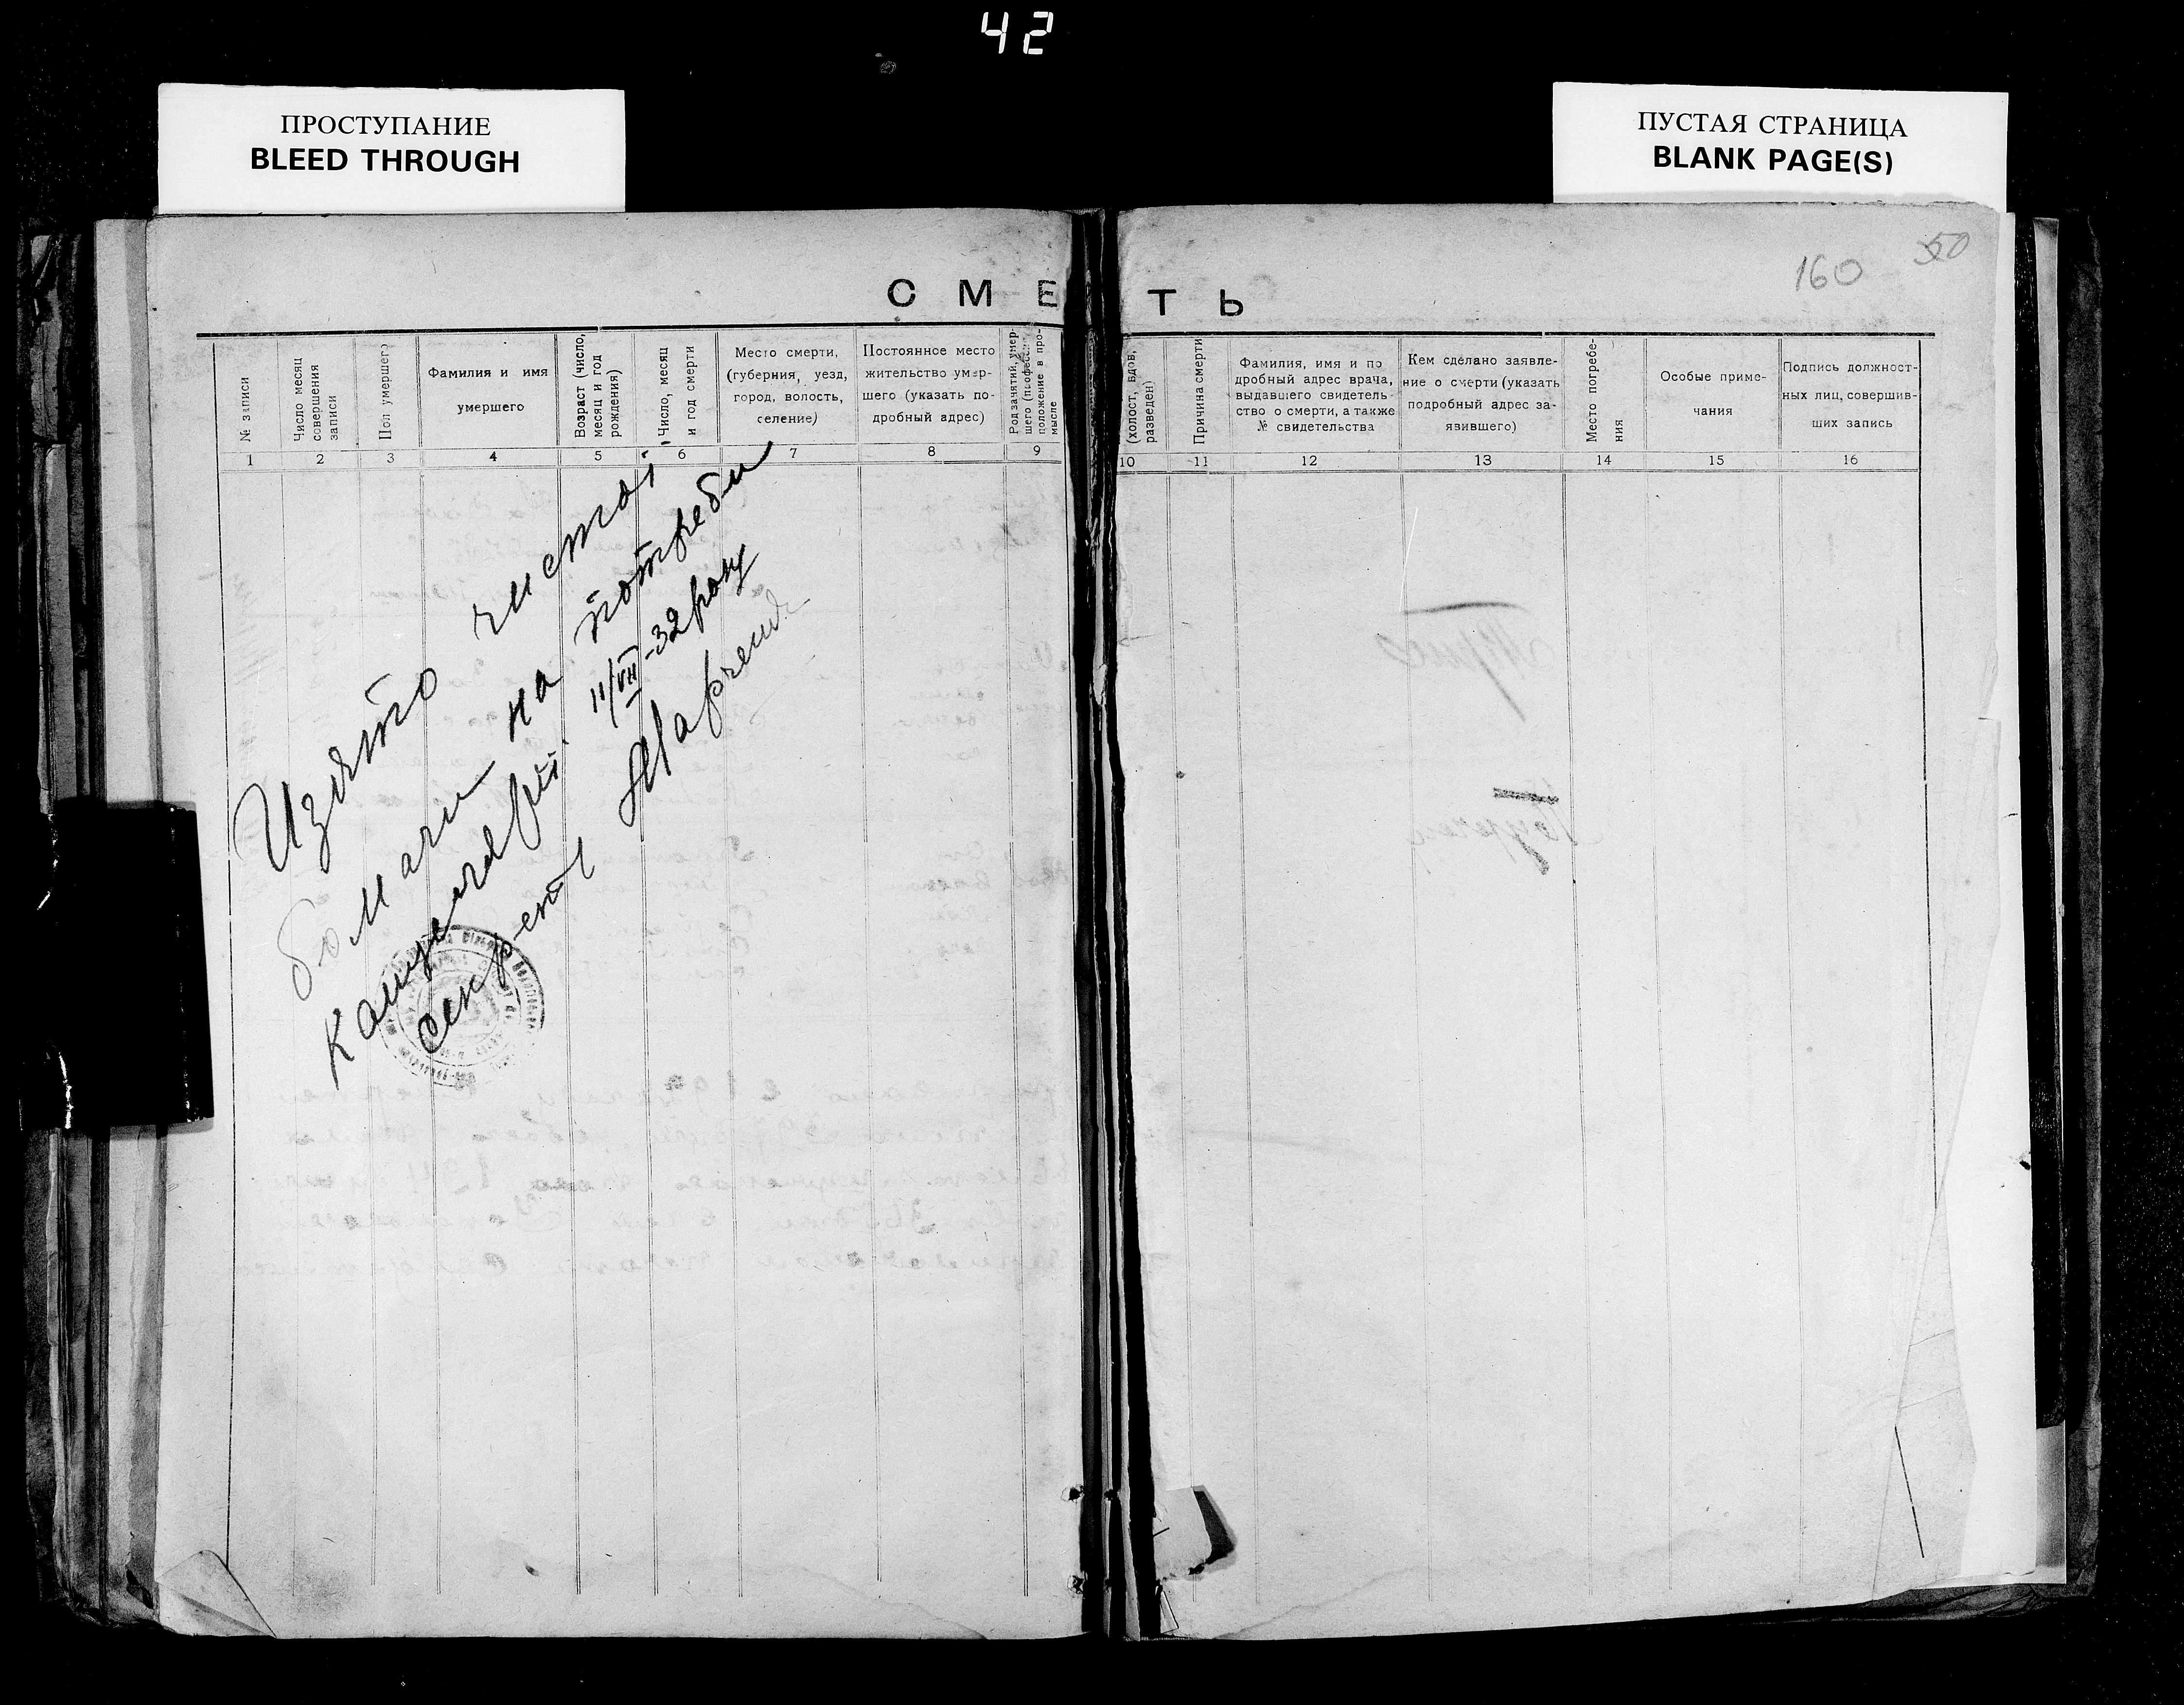 42
ПРОСТУПАНИЕ
BLEED THROUGH
ПУСТАЯ СТРАНИЦА
BLANK PAGE(S)
160 50
СМЕ
ТЬ
№ записи
Число месяц
совершения
записи
Пол умершего
Фамилия и имя
умершего
Возраст (число,
месяц и год
рождения)
Число, месяц
и год смерти
Место смерти,
(губерния, уезд,
город, волость,
селение)
Постоянное место
жительство умер-
шего (указать по-
дробный адрес)
Род занятий, умер-
шего (профессия
положение в про-
мысле
(холост, вдов,
разведен)
Причина смерти
Фамилия, имя и по
дробный адрес врача,
выдавшего свидетель-
ство о смерти, а также
№ свидетельства
Кем сделано заявле-
ние о смерти (указать
подробный адрес за-
явившего)
Место погребе-
ния
Особые приме-
чания
Подпись должност-
ных лиц, совершив-
ших запись
1 2 3 4 5 6 7 8 9 10 11 12 13 14 15 16
Изято чистої
бомаги на потреби
канцелярії. 11/VII-32 року